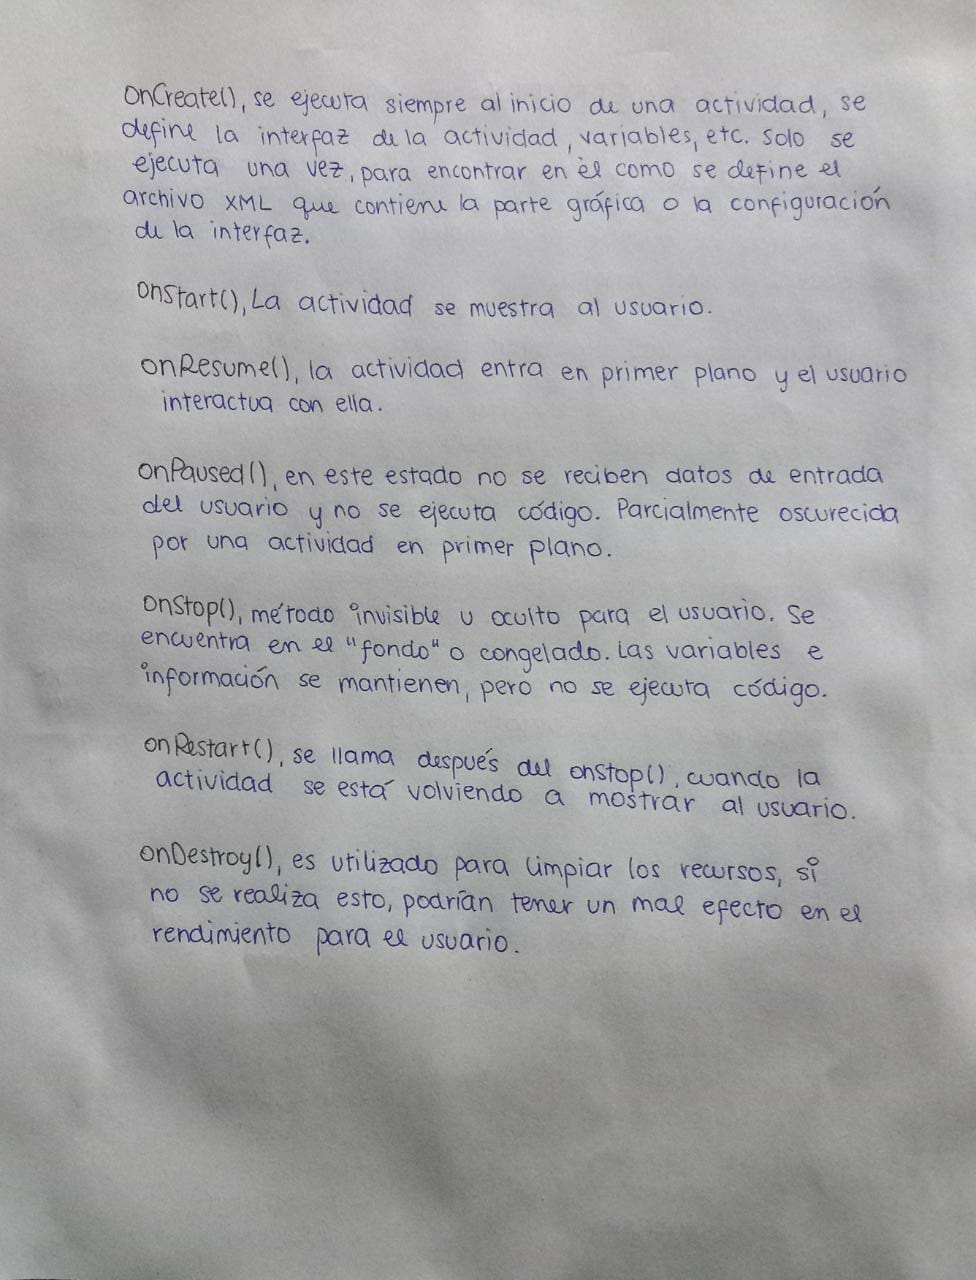 onCreate(), se ejecuta siempre al inicio de una actividad, se
define la interfaz de la actividad, variables, etc. solo se
ejecuta una vez, para encontrar en èl como se define el
archivo XML que contiene la parte gráfica o la configuración
de la interfaz.
onStart(), La actividad se muestra al usuario.
onResume(), la actividad entra en primer plano y el usuario
interactua con ella.
onPaused(), en este estado no se reciben datos de entrada
del usuario y no se ejecuta código. Parcialmente oscurecida
por una actividad en primer plano.
onStop(), método invisible u oculto para el usuario. Se
encuentra en el "fondo" o congelado. Las variables e
información se mantienen, pero no se ejecuta código.
onRestart(), se llama después del onStop(), cuando la
actividad se está volviendo a mostrar al usuario.
onDestroy(), es utilizado para limpiar los recursos, si
no se realiza esto, podrían tener un mal efecto en el
rendimiento para el usuario.